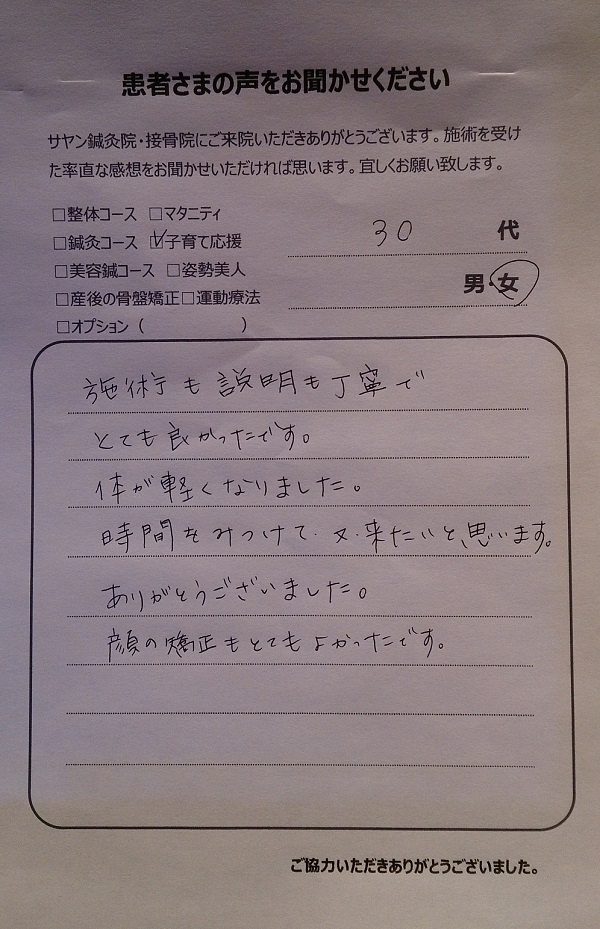 患者さまの声をお聞かせください
サヤン鍼灸院・接骨院にご来院いただきありがとうございます。施術を受け
た率直な感想をお聞かせいただければ思います。宜しくお願い致します。
□整体コース □マタニティ
□鍼灸コース ☑子育て応援
30 代
□美容鍼コース □姿勢美人
男・女
□産後の骨盤矯正□運動療法
□オプション（ ）
施術も説明も丁寧で
とても良かったです。
体が軽くなりました。
時間をみつけて又来たいと思います。
ありがとうございました。
顔の矯正もとてもよかったです。
ご協力いただきありがとうございました。